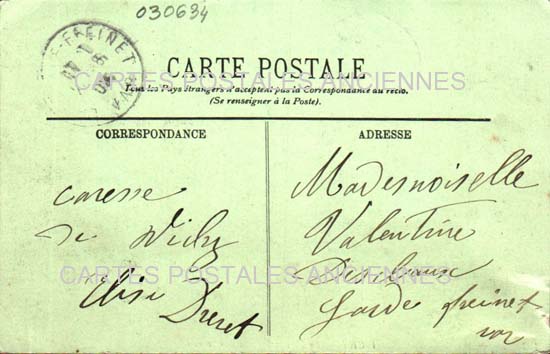 030634
FREINET
CARTE POSTALE
CARTES POSTALES ANCIENNES
Tous les Pays étrangers n'acceptent pas la Correspondance au recto.
(Se renseigner à la Poste).
CORRESPONDANCE
caresse
de Vichy
Elise
ADRESSE
Mademoiselle
Valentine
Garde freinet
var
CARTES POSTALES ANCIENNES